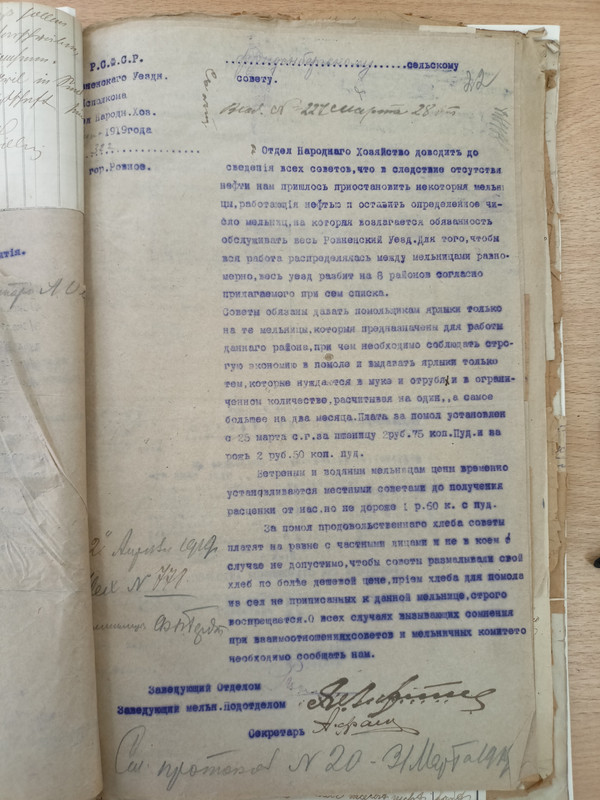 Р.С.Ф.С.Р.
сельскому
совету.
Уездн.
Народн. Хоз.
1919года
гор.Ровное.
Вход. N 227 Марта 28
22
Отдел Народнаго Хозяйство доводить до
сведения всех советов,что в следствие отсутствья
нефти нам пришлось приостановить некоторыя мельни
цы,работающія нефтью и оставить определенное чи-
сло мельниц,на которая возлагается обязанность
обслуживать весь Ровненский Уезд.Для того,чтобы
вся работа распределялась между мельницами равно-
мерно,весь уезд разбит на 8 районов согласно
прилагаемого при сем списка.
Советы обязаны давать помольщикам ярлыки только
на те мельницы,которыя предназначены для работы
даннаго района,при чем необходимо соблюдать стро-
гую экономию в помоле и выдавать ярлыки только
тем,которые нуждается в муке и отрубях и в ограни-
ченном количестве,расчитывая на один,,а самое
большее на два месяца.Плата за помол установлен
с 25 марта с.г.за пшеницу 2руб.75 коп.Пуд.и за
рожь 2 руб.50 коп. пуд.
Ветреным и водяным мельницам цены временно
устанавливаются местными советами до получения
расценки от нас.но не дороже 1 р.60 к. с пуд.
За помол продовольственного хлеба советы
платят на равне с частными лицами и не в коем
случае не допустимо,чтобы советы размалывали свой
хлеб по более дешевой цене,прiем хлеба для помола
из сел не приписанных к данной мельнице,строго
воспрещается.О всех случаях вызывающих сомнения
при взаимоотношенияхсоветов и мельничных комитето
необходимо сообщать нам.
2 Апреля 1919г.
N 771
Заведующий Отделом
Заведующий мельн.Подотделом
Секретарь
См. протокол N 20 - 31 Марта 1919г